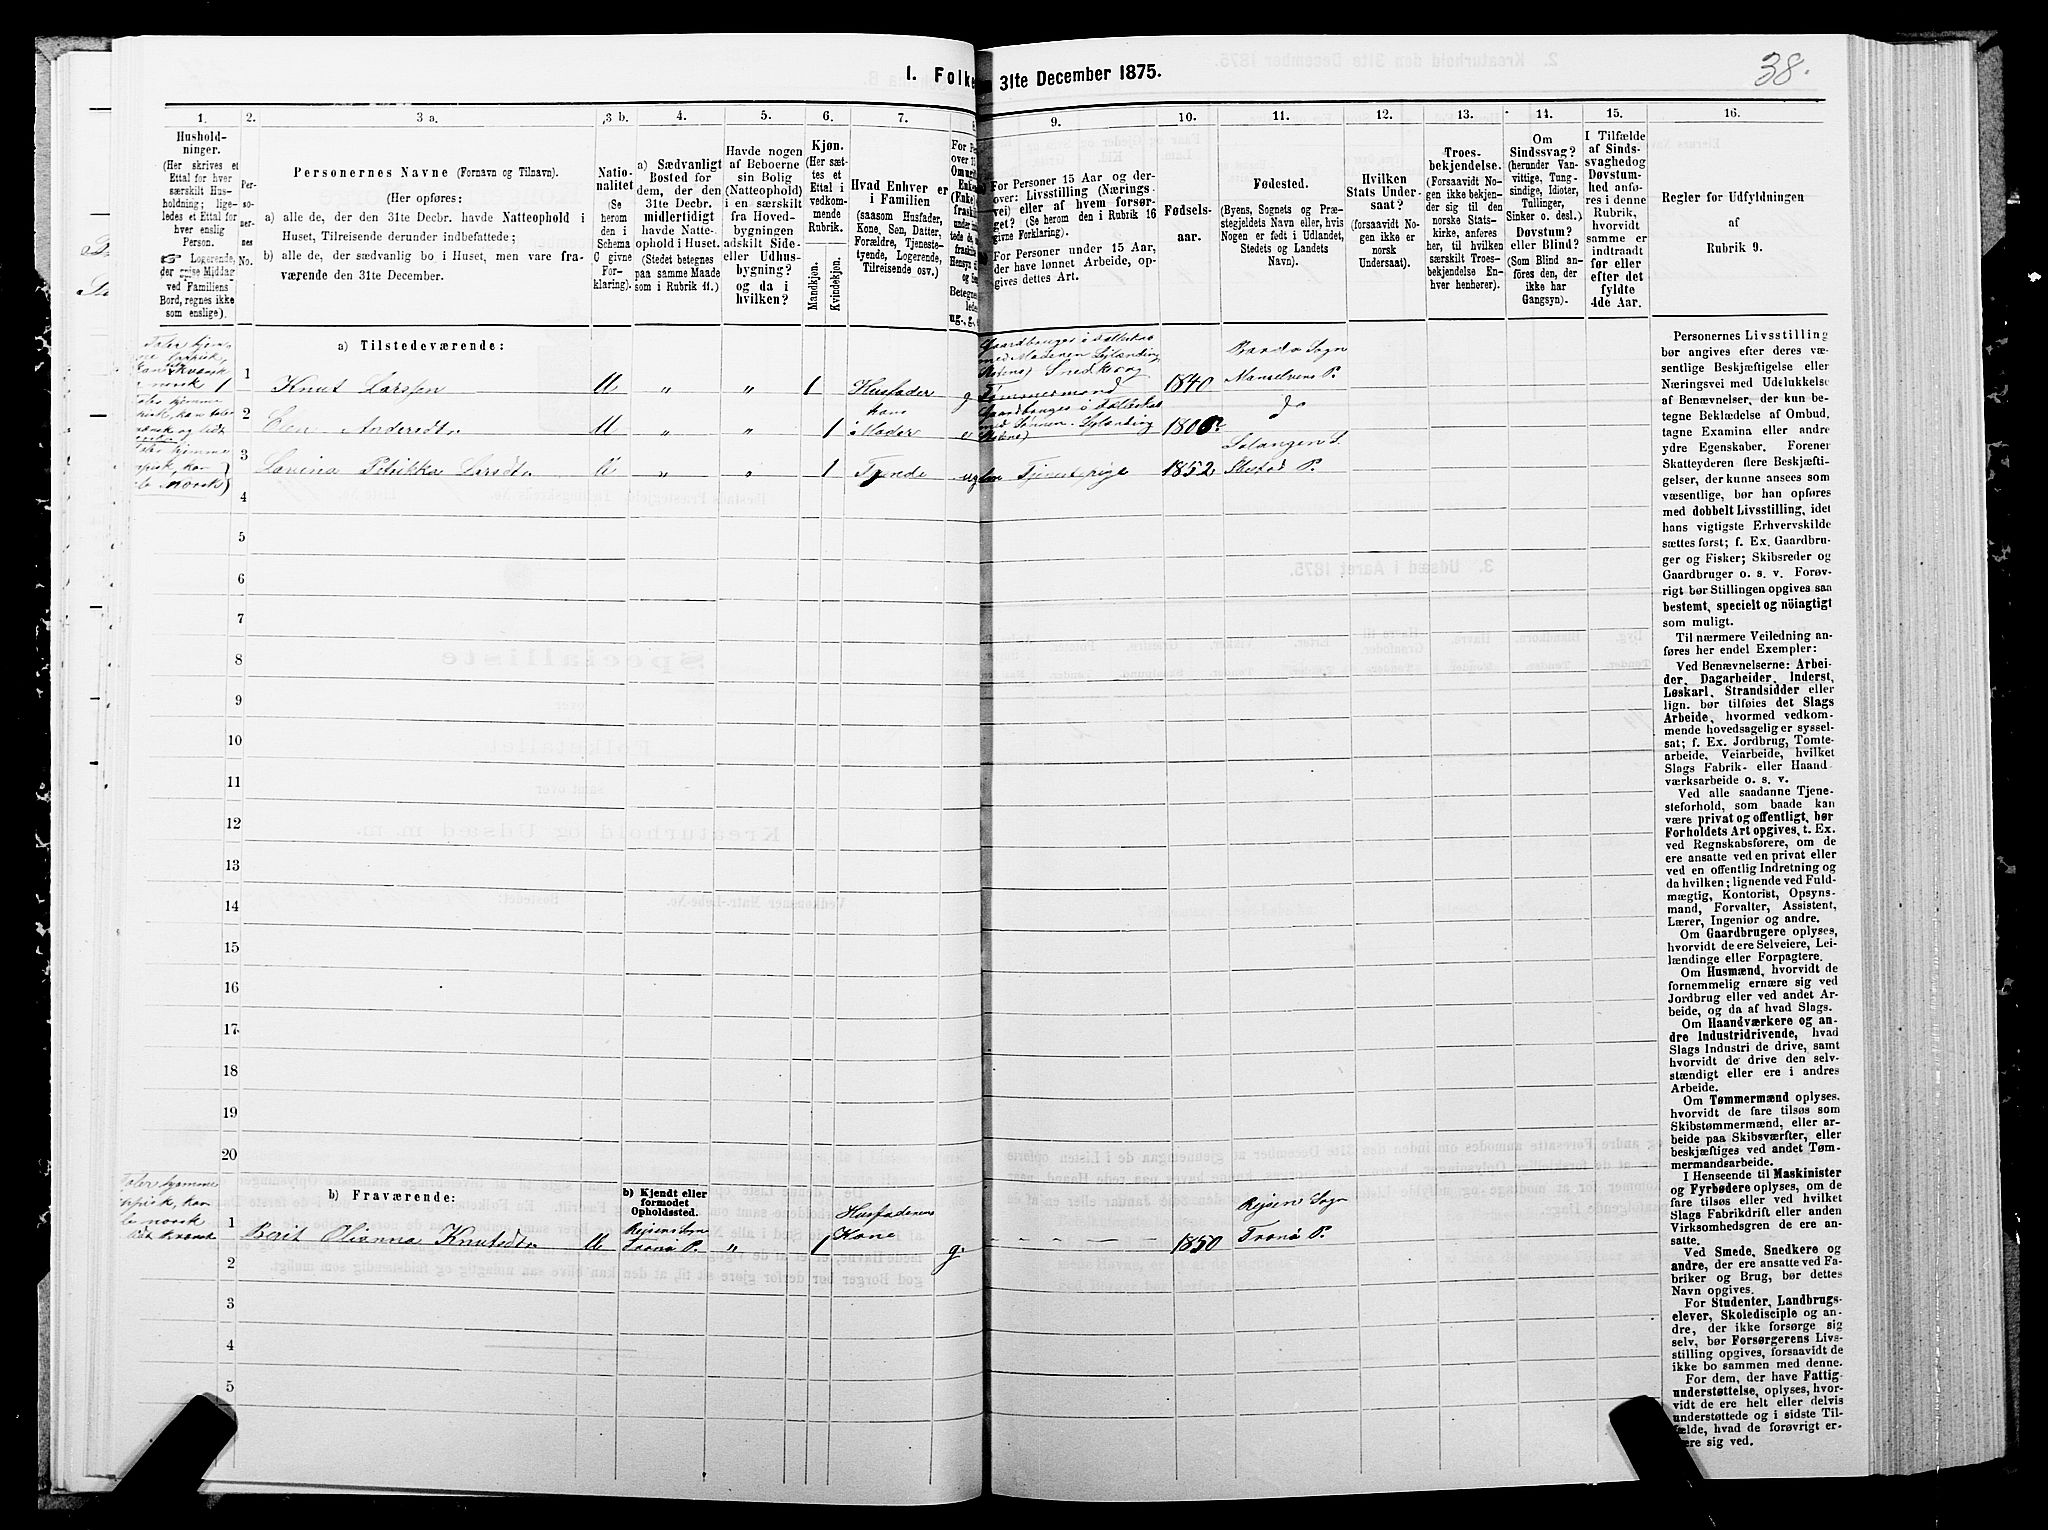 38.
I. Folke
31te December 1875.
1.
2.
3 a.
3 b.
4.
5.
6.
7.
8
9.
10.
11.
12.
13.
14.
15.
16.
Hushold-
ninger.
(Her skrives et
Ettal for hver
særskilt Hus-
holdning; lige-
ledes et Ettal for
hver enslig
Person.
Logerende,
der spise Middag
ved Familiens
Bord, regnes ikke
som enslige).
Per-
so-
ner-
nes
No.
Personernes Navne (Fornavn og Tilnavn).
(Her opføres:
a) alle de, der den 31te Decbr. havde Natteophold i
Huset, Tilreisende derunder indbefattede;
b) alle de, der sædvanlig bo i Huset, men vare fra-
værende den 31te December.
Natio-
nalitet
(Se
herom
den i
Schema
C givne
For-
klaring).
a) Sædvanligt
Bosted for
dem, der den
31te Decbr.
midlertidigt
havde Natte-
ophold i Huset.
(Stedet betegnes
paa samme Maade
som i Rubrik 11.)
Havde nogen
af Beboerne
sin Bolig
(Natteophold)
i en særskilt
fra Hoved-
bygningen
adskilt Side-
eller Udhus-
bygning?
og da i
hvilken?
Kjøn.
(Her sæt-
tes et
Ettal i
vedkom-
mende
Rubrik.
Mandkjøn.
Kvindekjøn.
Hvad Enhver er
i Familien
(saasom Husfader,
Kone, Søn, Datter,
Forældre, Tjeneste-
tyende, Logerende,
Tilreisende osv.)
For Personer 15 Aar og der-
over: Livsstilling (Nærings-
vei) eller af hvem forsør-
get? (Se herom den i Rubrik 16
givne Forklaring).
For Personer under 15 Aar,
der have lønnet Arbeide, op-
gives dettes Art.
Fødsels-
aar.
Fødested.
(Byens, Sognets og Præ-
stegjeldets Navn eller, hvis
Nogen er født i Udlandet,
Stedets og Landets
Navn).
Hvilken
Stats Under-
saat?
(forsaavidt No-
gen ikke er
norsk
Undersaat).
Troes-
bekjendelse.
(Forsaavidt No-
gen ikke bekjen-
der sig til den
norske Stats-
kirke, anføres
her, til hvilken
særskilt Troes-
bekjendelse En-
hver henhører).
Om
Sindssvag?
(herunder Van-
vittige, Tung-
sindige, Idioter,
Tullinger,
Sinker o. desl.)
Døvstum?
eller Blind?
(Som Blind an-
føres den, der
ikke har
Gangsyn).
I Tilfælde
af Sinds-
svaghed og
Døvstum-
hed anfø-
res i denne
Rubrik,
hvorvidt
samme er
indtraadt
før eller
efter det
fyldte
4de Aar.
Regler for Udfyldningen
af
Rubrik 9.
a) Tilstedeværende:
1 1 Knut Larssen M „ „ 1 Husfader g Snedker og Tømmermand 1840 Bardo Sogn Manselvens P.
2 Elen Andersdtr M „ „ 1 hans Moder 1805? do
3 Lavina Petrikka Larsdtr „ „ 1 Tjende ug Tjenestepige 1852 Salangen S. Ibestad P.
4
5
6
7
8
9
10
11
12
13
14
15
16
17
18
19
20
b) Fraværende:
b) Kjendt eller
formodet
Opholdssted.
1 Berit Olianna Knutsdtr M „ 1 Husfaderens Kone g. - - - - 1850 Tranø P.
2
3
4
5
Personernes Livsstilling
bør angives efter deres væ-
sentlige Beskjæftigelse eller
Næringsvei med Udelukkelse
af Benævnelser, der kun be-
tegne Beklædelse af Ombud,
tagne Examina eller andre
ydre Egenskaber. Forener
Skatteyderen flere Beskjæfti-
gelser, der kunne ansees som
væsentlige, bør han opføres
med dobbelt Livsstilling, idet
hans vigtigste Erhvervskilde
sættes først; f. Ex. Gaardbru-
ger og Fisker; Skibsreder og
Gaardbruger o. s. v. Forøv-
rigt bør Stillingen opgives saa
bestemt, specielt og nöiagtigt
som muligt.
Til nærmere Veiledning an-
føres her endel Exempler:
Ved Benævnelserne: Arbei-
der, Dagarbeider, Inderst,
Løskarl, Strandsidder eller
lign. bør tilføies det Slags
Arbeide, hvormed vedkom-
mende hovedsagelig er syssel-
sat; f. Ex. Jordbrug, Tomte-
arbeide, Veiarbeide, hvilket
Slags Fabrik- eller Haand
værksarbeide o. s. v.
Ved alle saadanne Tjene-
steforhold, som baade kan
være privat og offentligt, bør
Forholdets Art opgives, t. Ex.
ved Regnskabsførere, om de
ere ansatte ved en privat eller
ved en offentlig Indretning og
da hvilken; lignende ved Fuld-
mægtig, Kontorist, Opsyns-
mand, Forvalter, Assistent,
Lærer, Ingeniør og andre.
Om Gaardbrugere oplyses,
hvorvidt de ere Selveiere, Lei-
lændinge eller Forpagtere.
Om Husmænd, hvorvidt de
fornemmelig ernære sig ved
Jordbrug eller ved andet Ar-
beide, og da af hvad Slags.
Om Haandværkere og an-
dre Industridrivende, hvad
Slags Industri de drive, samt
hvorvidt de drive den selv-
stændigt eller ere i andres
Arbeide.
Om Tømmermænd oplyses,
hvorvidt de fare tilsøs som
Skibstømmermænd, eller ar-
beide paa Skibsværfter, eller
beskjæftiges ved andet Tøm-
mermandsarbeide.
I Henseende til Maskinister
og Fyrbødere oplyses, om de
fare tilsøs eller ved hvilket
Slags Fabrikdrift eller anden
Virksomhedsgren de ere an-
satte.
Ved Smede, Snedkere og
andre, der ere ansatte ved Fa-
briker og Brug, bør dettes
Navn opgives.
For Studenter, Landbrugs-
elever, Skoledisciple og an-
dre, der ikke forsørge sig
selv, bør Forsørgerens Livs-
stilling opgives, forsaavidt de
ikke bo sammen med denne.
For dem, der have Fattig-
understøttelse, oplyses, hvor-
vidt de ere helt eller delvis
understøttede og i sidste Til-
fælde, hvad de forøvrigt er-
nære sig ved.